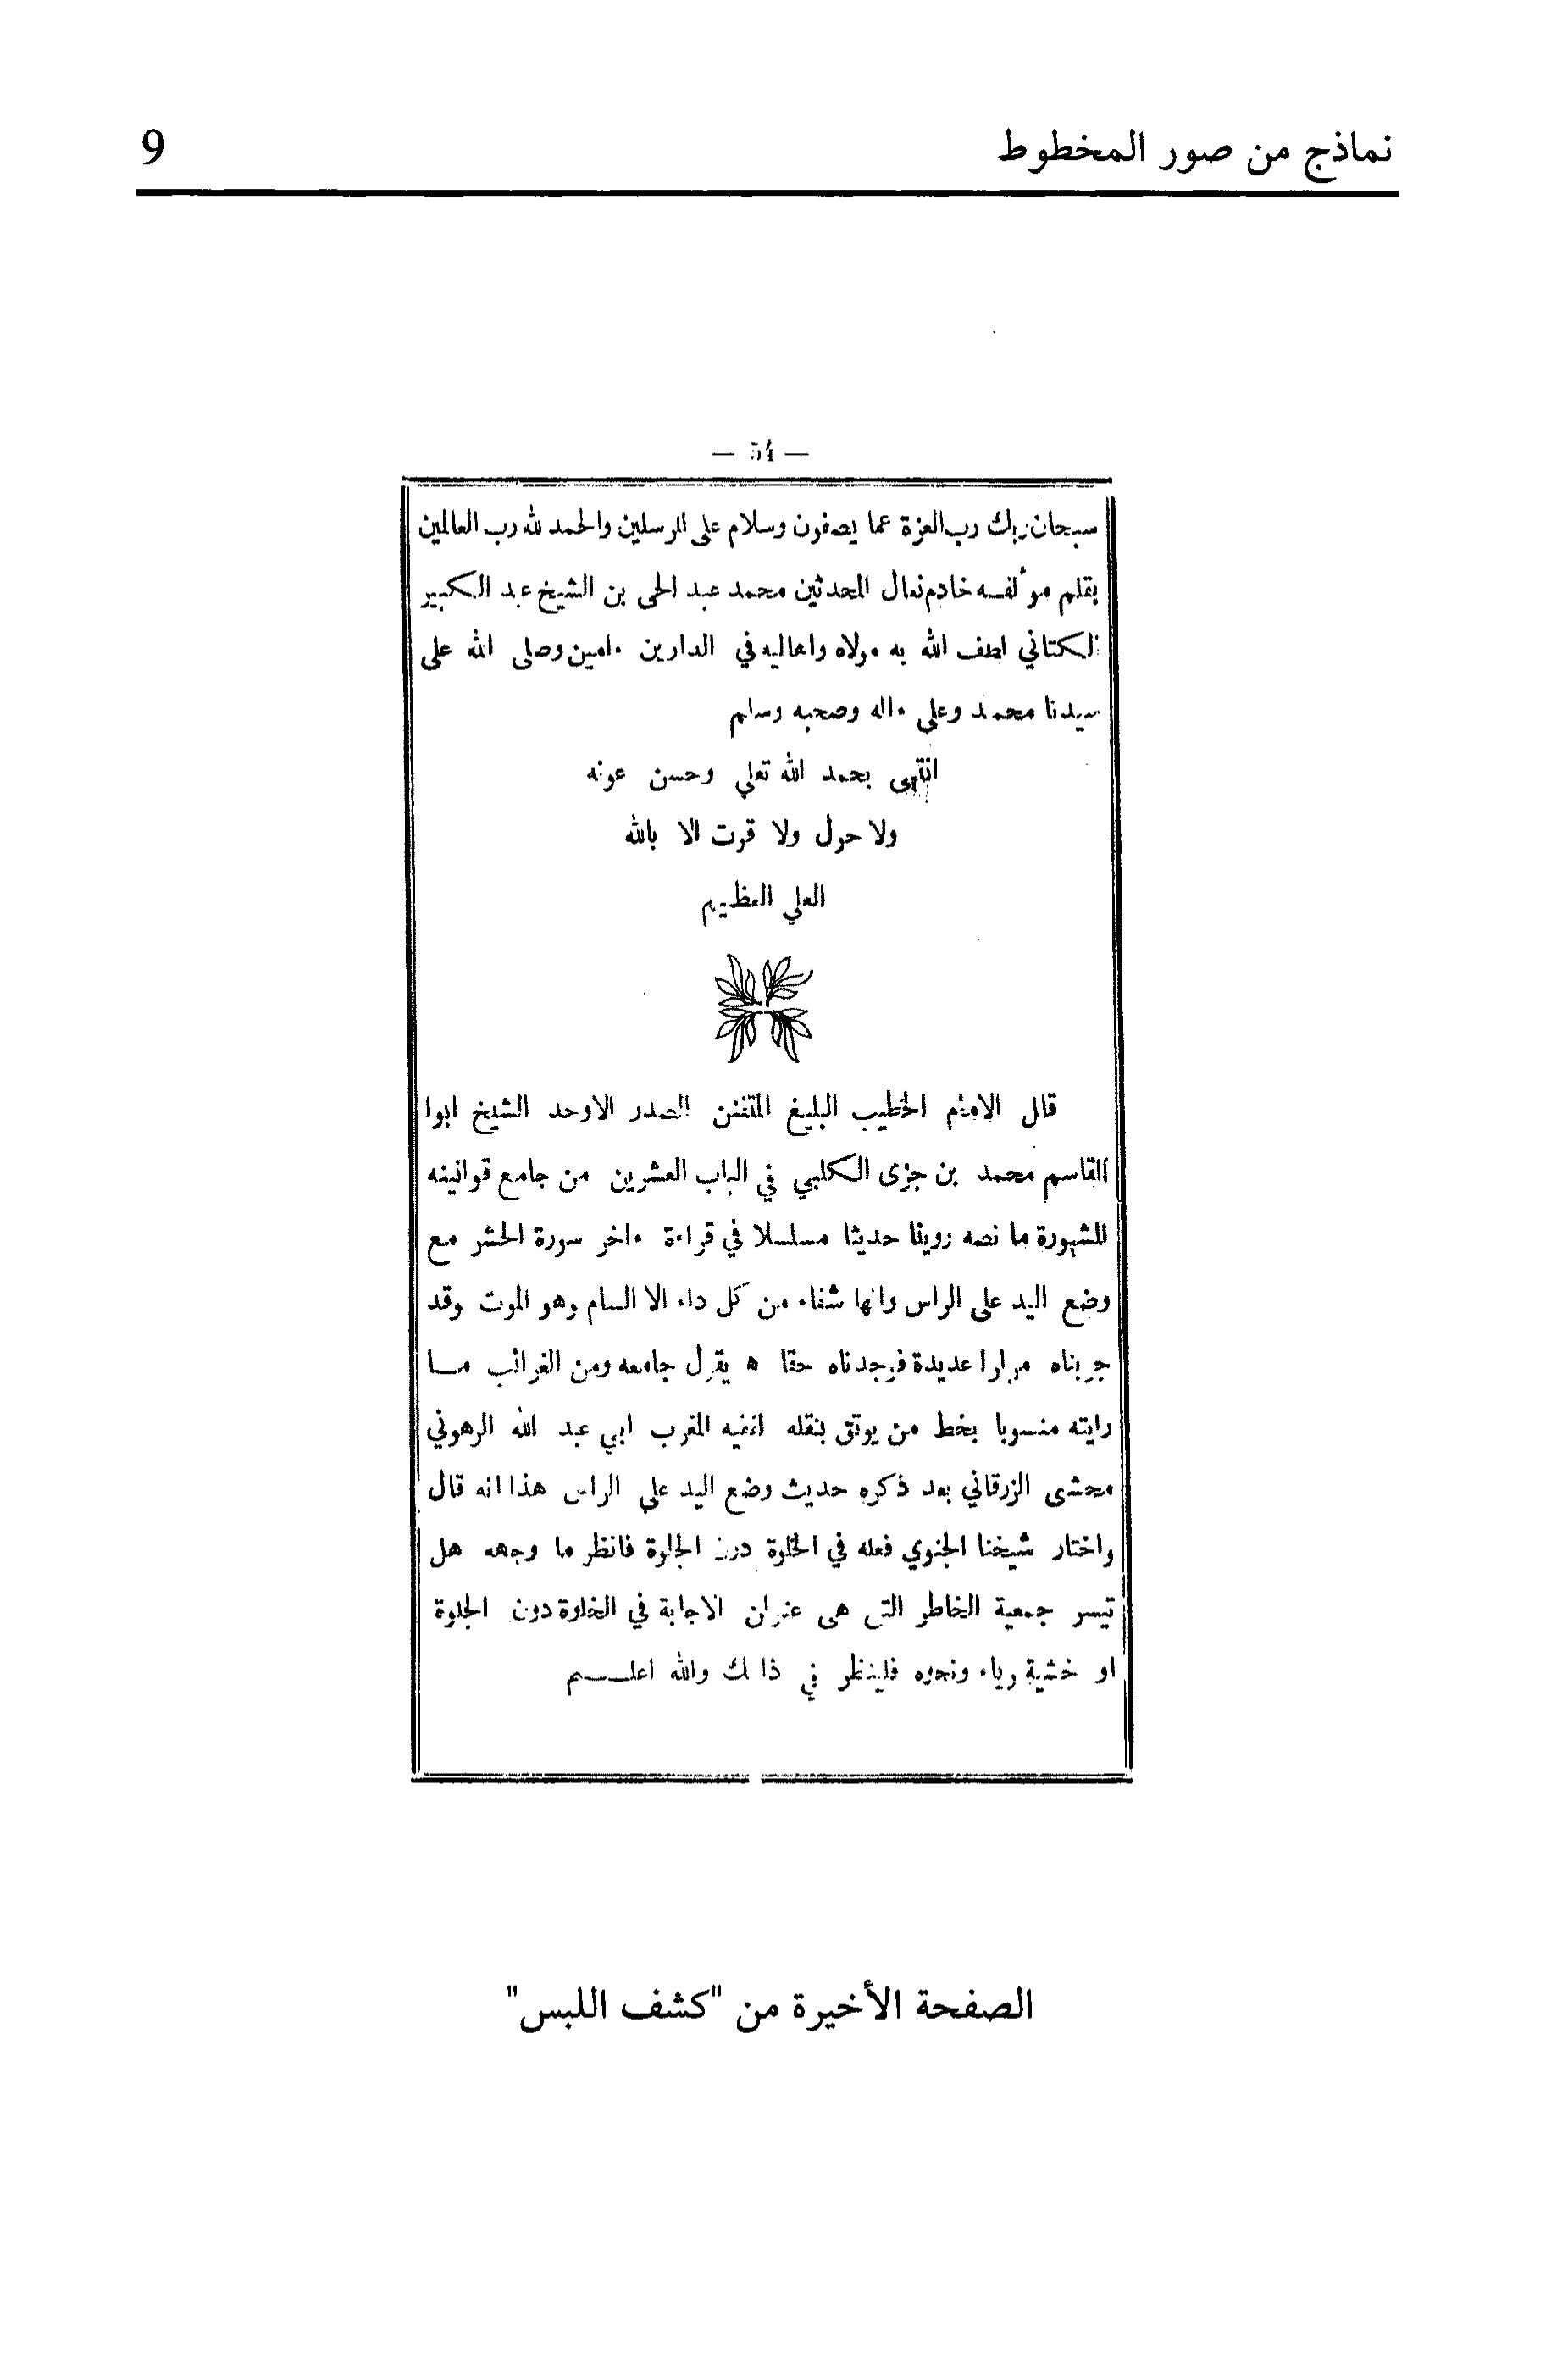 نماذج من صور المخطوط
9
— 54 —
سبحان ربك رب العزة عما يصفون وسلام على المرسلين والحمد لله رب العالمين
بقلم مؤلفه خادم نعال المحدثين محمد عبد الحى بن الشيخ عبد الكبير
الكتاني لطف الله به مولاه واهاليه في الدارين ءامين وصلى الله على
سيدنا محمد وعلى ءاله وصحبه وسلم
انتهى بحمد الله تعلي وحسن عونه
ولا حول ولا قوت الا بالله
العلي العظيم
قال الامام الخطيب البليغ المتفنن الصدر الاوحد الشيخ ابوا
القاسم محمد بن جزى الكلبي في الباب العشرين من جامع قوانينه
المشهورة ما نصه روينا حديثا مسلسلا في قراءة ءاخر سورة الحشر مع
وضع اليد على الراس وانها شفاء من كل داء الا السام وهو الموت وقد
جربناه مرارا عديدة فوجدناه حقا ه يقول جامعه ومن الغرائب مـا
رايته منسوبا بخط من يوتق بنقله لفقيه المغرب ابي عبد الله الرهوني
محشى الزرقاني بعد ذكره حديث وضع اليد علي الراس هذا انه قال
واختار شيخنا الجنوي فعله في الخلوة دون الجلوة فانظر ما وجهه هل
تيسر جمعية الخاطر التى هى عنوان الاجابة في الخلوة دون الجلوة
او خشية رياء ونحوه فلينظر في ذا لك والله اعلـــم
الصفحة الأخيرة من "كشف اللبس"